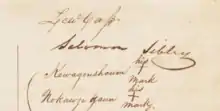 Lew. Cass.
Solomon Sibley
Kewagoushcum his mark
Nokawjegaun his x mark